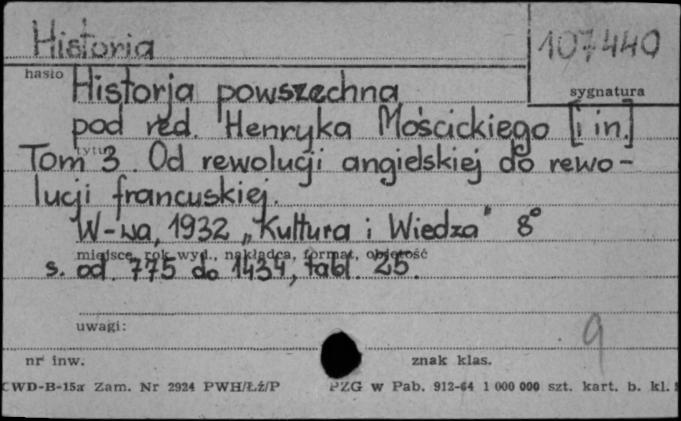 Historia
107440
hasło
sygnatura
Historja powszechna
pod red. Henryka Mościckiego [i in.]
tytuł
Tom 3. Od rewolucji angielskiej do rewo-
lucji francuskiej.
W-wa, 1932 „Kultura i Wiedza" 8°
miejsce, rok wyd., nakładca, format, objętość
s. od. 775 do 1434, tabl. 25.
uwagi:
9
nr inw.
znak klas.
CWD-B-15a Zam. Nr 2924 PWH/Łź/P PZG w Pab. 912-64 1 000 000 szt. kart. b. kl.